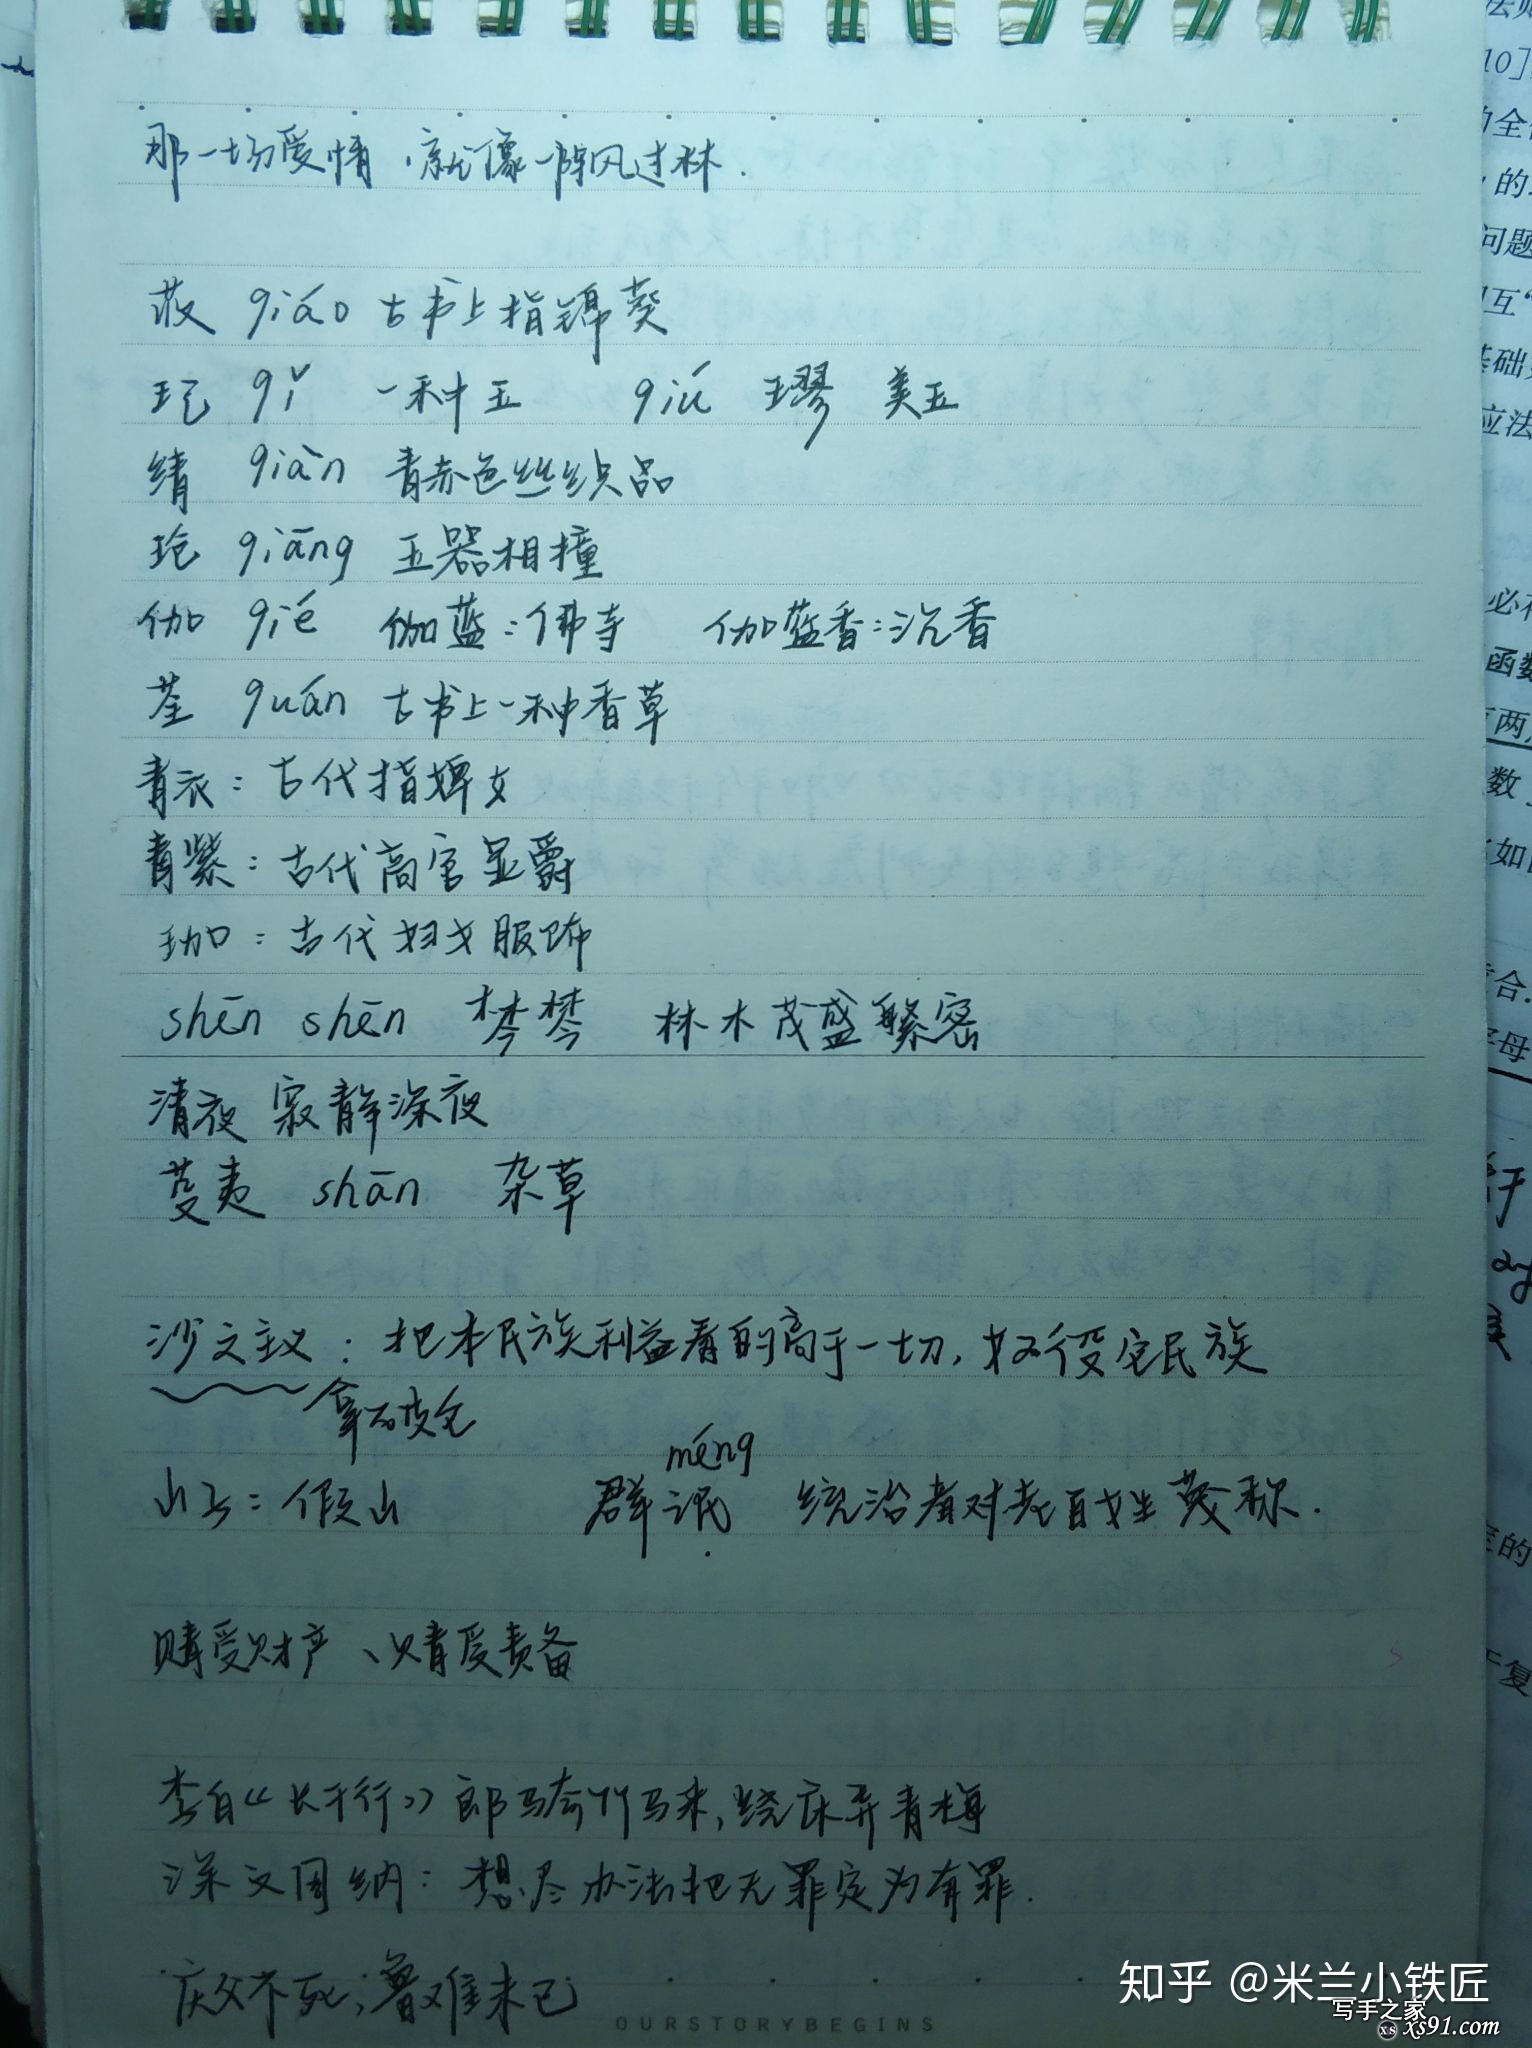 那一场爱情，就像一阵风过林.
荍 qiáo 古书上指锦葵
玘 qǐ 一种玉 qiú 璆 美玉
綪 qiàn 青赤色丝织品
玱 qiāng 玉器相撞
伽 qié 伽蓝：佛寺 伽蓝香：沉香
荃 quán 古书上一种香草
青衣：古代指婢女
青紫：古代高官显爵
珈：古代妇女服饰
shēn shēn 梣梣 林木茂盛繁密
清夜 寂静深夜
芟夷 shān 杂草
沙文主义：把本民族利益看的高于一切，奴役它民族
拿破仑
méng
山子：假山 群氓 统治者对老百姓蔑称.
赌受财产、赌受责备
李白《长干行》郎马奔竹马来，绕床弄青梅
深文周纳：想尽办法把无罪定为有罪.
庆父不死；鲁难未已
OURSTORYBEGINS
知乎 @米兰小铁匠
写手之家
xs xs91.com
10]
全
的
问题
互“
基础
应法
必
函数
两
数
如
合.
母
的
复